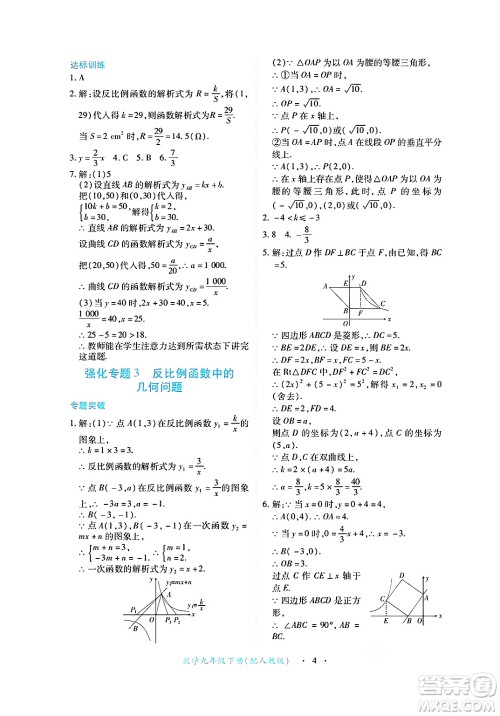 达标训练
1. A
2. 解：设反比例函数的解析式为 R=k/S，将(1，
29)代入得 k=29，则函数解析式为 R=29/S.
当 S=2 cm² 时，R=29/2=14.5(Ω).
3. y=2/3 x　4. C　5. B　6. 7/3
7. 解：(1)5
(2)设直线 AB 的解析式为 y_AB=kx+b.
把(10,50)和(0,30)代入得
{10k+b=50, b=30, 解得{k=2, b=30.
∴ 直线 AB 的解析式为 y_AB=2x+30.
设曲线 CD 的函数解析式为 y_CD=a/x.
把(20,50)代入得，50=a/20，∴ a=1 000.
∴ 曲线 CD 的解析式为 y_CD=1 000/x.
(3)当 y=40 时，2x+30=40，∴ x=5.
1 000/x=40. ∴ x=25.
∴ 25-5=20>18.
∴ 教师能在学生注意力达到所需状态下讲完
这道题.
强化专题 3　反比例函数中的
几何问题
专题突破
1. 解：(1)∵ 点 A(1,3)在反比例函数 y₁=k/x
的图象上，
∴ k=1×3=3.
∴ 反比例函数的解析式为 y₁=3/x.
∵ 点 B(-3,a)在反比例函数 y₁=3/x 的图
象上，∴ -3a=3，∴ a=-1.
∴ B(-3,-1).
∵ 点 A(1,3)，B(-3,-1)在一次函数 y₂=
mx+n 的图象上，
∴ {m+n=3, -3m+n=-1. ∴ {m=1, n=2.
∴ 一次函数的解析式为 y₂=x+2.
(2)∵ △OAP 为以 OA 为腰的等腰三角形，
∴ ①当 OA=OP 时，
∵ A(1,3)，∴ OA=√10.
∴ OP=√10.
∵ 点 P 在 x 轴上，
∴ P(-√10,0)或(√10,0).
②当 OA=AP 时，则点 A 在线段 OP 的垂直平分
线上.
∵ A(1,3)，∴ P(2,0).
∴ 当△OAP 为以 OA
为腰的等腰三角形时，点 P 的坐标为
(-√10,0)或(√10,0)或(2,0).
2. -4<k≤-3
3. 8　4. -8/3
5. 解：过点 D 作 DF⊥BC 于点 F，由题意，得 BC
=5.
∵ 四边形 ABCD 是菱形，∴ DC=5.
∵ BE=2DE，∴ 设 DE=x，则 BE=2x.
∴ DF=2x，BF=x，FC=5-x.
在 Rt△DFC 中，DF²+FC²=DC²，
∴ (2x)²+(5-x)²=5². 解得 x₁=2，x₂=0
(舍去).
∴ DE=2，FD=4.
设 OB=a，
则点 D 的坐标为(2，a+4)，点 C 的坐标为
(5,a).
∵ 点 D、C 在双曲线上，
∴ k=2×(a+4)=5a.
∴ a=8/3，∴ k=5a=5×8/3=40/3.
6. 解：∵ 当 x=0 时，y=0+4=4，
∴ A(0,4)，∴ OA=4.
∵ 当 y=0 时，0=4/3 x+4，
∴ x=-3，
∴ B(-3,0).
∴ OB=3.
过点 C 作 CE⊥x 轴于
点 E.
∵ 四边形 ABCD 是正方形，
∴ ∠ABC=90°，AB=BC.
数学九年级下册(配人教版)　· 4 ·